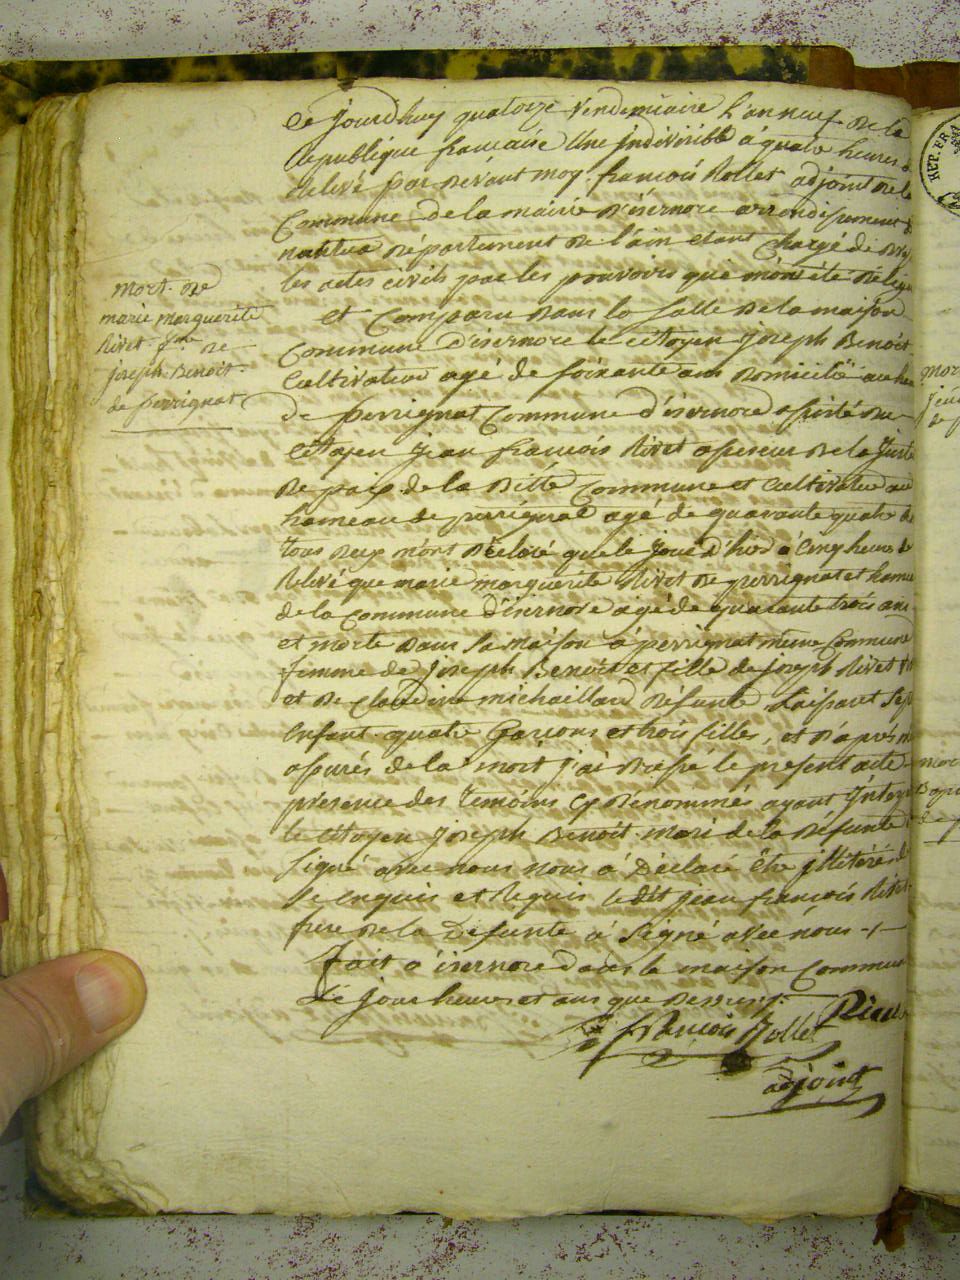 Ce jourdhuy quatorze vendemiaire l'an neuf de la
Republique francaise Une indivisible à quatre heures d
relevé par devant moy françois Rollet adjoint de la
Commune de la mairie d'isernore arrondisement d
nantua département de l'ain etant chargé de
les actes civils par les pouvoirs que m'ont été
mort de
marie marguerite
Rivet f.me de
joseph Benoit
de perrignat
et Comparu dans la Salle de la maison
Commune d'isernore le citoyen joseph Benoit
Cultivateur agé de soixante ans domicilié au ha
de perrignat Commune d'isernore assisté du
citoyen jean françois Rivet assesseur de la juste
de paix de la ditte Commune et Cultivateur au
hameau de perrignat agé de quarante quatre
tous deux m'ont déclaré que le jour d'hier à cinq heures de
Relevé que marie marguerite Rivet de perrignat et hame
de la Commune d'isernore agé de quarante trois ans
et morte dans sa maison a perrignat meme Commune
femme de joseph Benoit et fille de joseph Rivet
et de Claudine michaillard défunte Laissant sep
enfant quatre garçons et trois filles, et d'après m
assurés de la mort j'ai dressé le present acte
présence des temoins cy dénommés ayant
le citoyen joseph Benoit mari de la défunte
signé avec nous nous à déclaré être illiteré d
ce enquis et Requis le dit jean françois Rivet
frere de la défunte à signé avec nous
fait a isernore dans la maison Commun
Le jour heures et ans que dessus
françois Rollet
adjoint
mor
mor